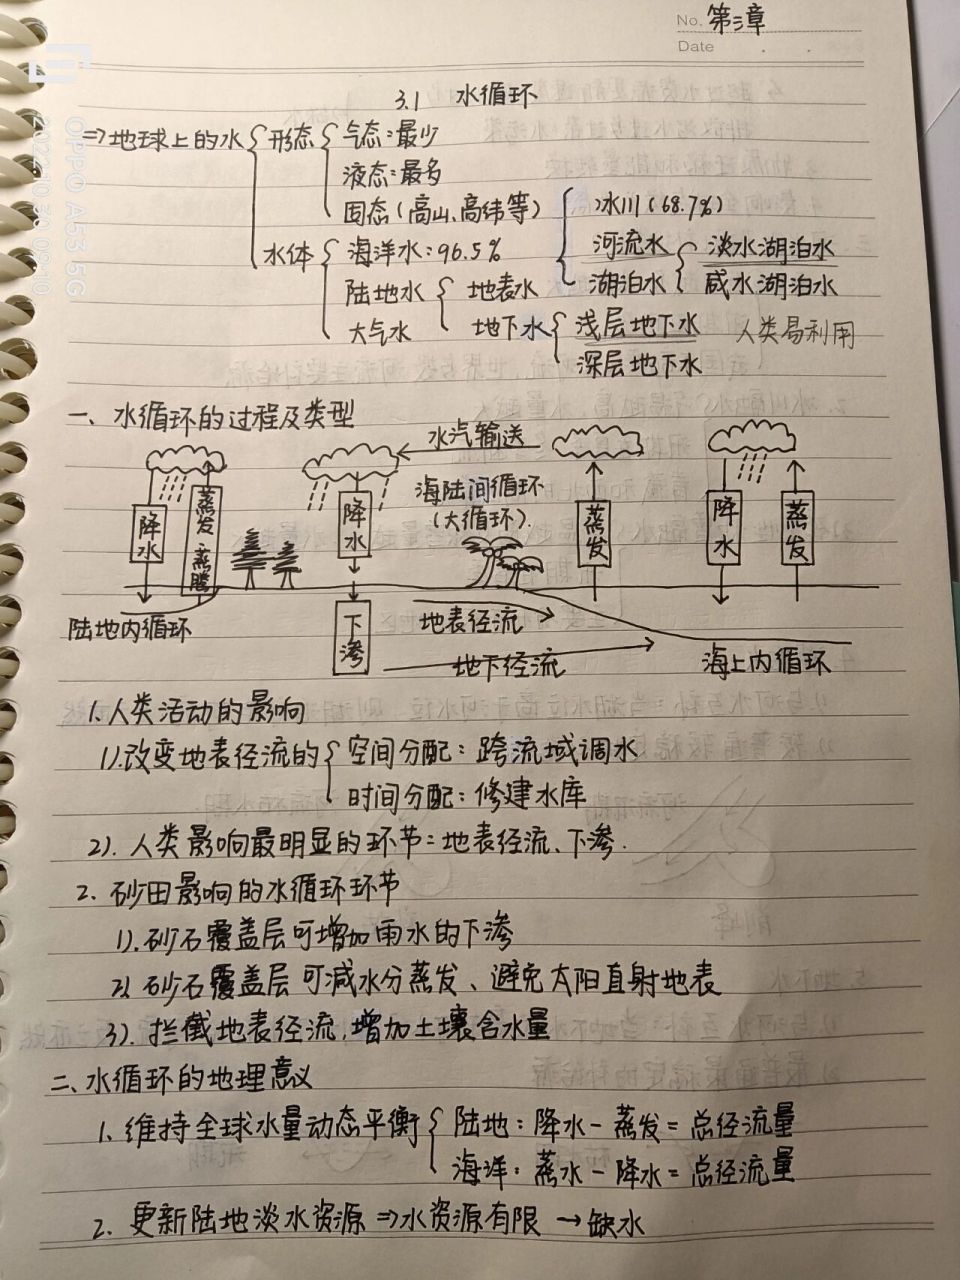 No. 第三章
Date
3.1 水循环
⇒地球上的水 形态 气态:最少
液态:最多
固态(高山、高纬等) 冰川(68.7%)
水体 海洋水:96.5% 河流水 淡水湖泊水
陆地水 地表水 湖泊水 咸水湖泊水
大气水 地下水 浅层地下水 人类易利用
深层地下水
一、水循环的过程及类型
水汽输送
海陆间循环
(大循环).
降水 蒸发 蒸腾 降水 蒸发 降水 蒸发
陆地内循环 下渗 地表径流
地下径流 海上内循环
1.人类活动的影响
1).改变地表径流的 空间分配:跨流域调水
时间分配:修建水库
2).人类影响最明显的环节:地表径流、下渗.
2.砂田影响的水循环环节
1).砂石覆盖层可增加雨水的下渗
2).砂石覆盖层可减水分蒸发、避免太阳直射地表
3).拦截地表径流,增加土壤含水量
二、水循环的地理意义
1.维持全球水量动态平衡 陆地:降水-蒸发=总径流量
海洋:蒸水-降水=总径流量
2.更新陆地淡水资源⇒水资源有限→缺水
OPPO A53 5G
2022.10.30 09:10